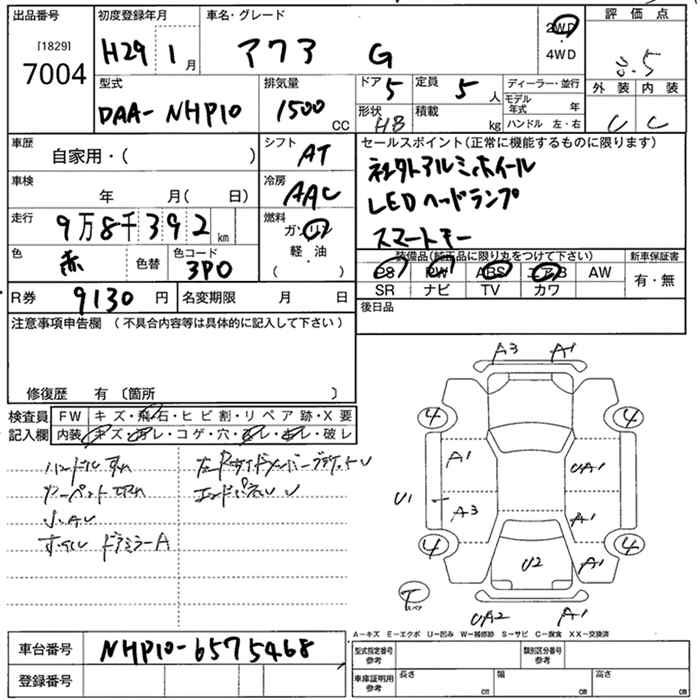 出品番号 初度登録年月 車名・グレード 評価点
[1829]
7004
H29 1月 アクア G 2WD
・
4WD
3.5
型式 排気量 ドア 定員 ディーラー・並行 外装 内装
DAA-NHP10 1500CC 5 5人
モデル年式 年
形状 積載
HB kg ハンドル 左・右 C
車歴 シフト セールスポイント(正常に機能するものに限ります)
自家用・( ) AT 社外アルミホイール
車検 冷房 LEDヘッドランプ
年 月( 日) AAC
走行 燃料 スマートキー
9万8千392km ガソリン
軽油
( )
色 色替 色コード 装備品(純正品に限り丸をつけて下さい) 新車保証書
赤 3P0 PS PW ABS エアB AW 有・無
SR ナビ TV カワ
R券 9130円 名変期限 月 日 後日品
注意事項申告欄(不具合内容等は具体的に記入して下さい)
修復歴 有(箇所 )
検査員 FW キズ・飛石・ヒビ割・リペア跡・X要
記入欄 内装 キズ・汚レ・コゲ・穴・スレ・キレ・破レ
ハンドルすれ
カーペット切れ
エンドパネルU
ドアミラーA
A3 A1
4 4
A1 UA1
U1 A3 A1
4 4
U2 A1
T
UA2 A1
A-キズ E-エクボ U-凹み W-補修跡 S-サビ C-腐食 XX-交換済
車台番号 NHP10-6575468
型式指定番号 参考 類別区分番号 参考
登録番号
車庫証明用 参考 長さ cm 幅 cm 高さ cm